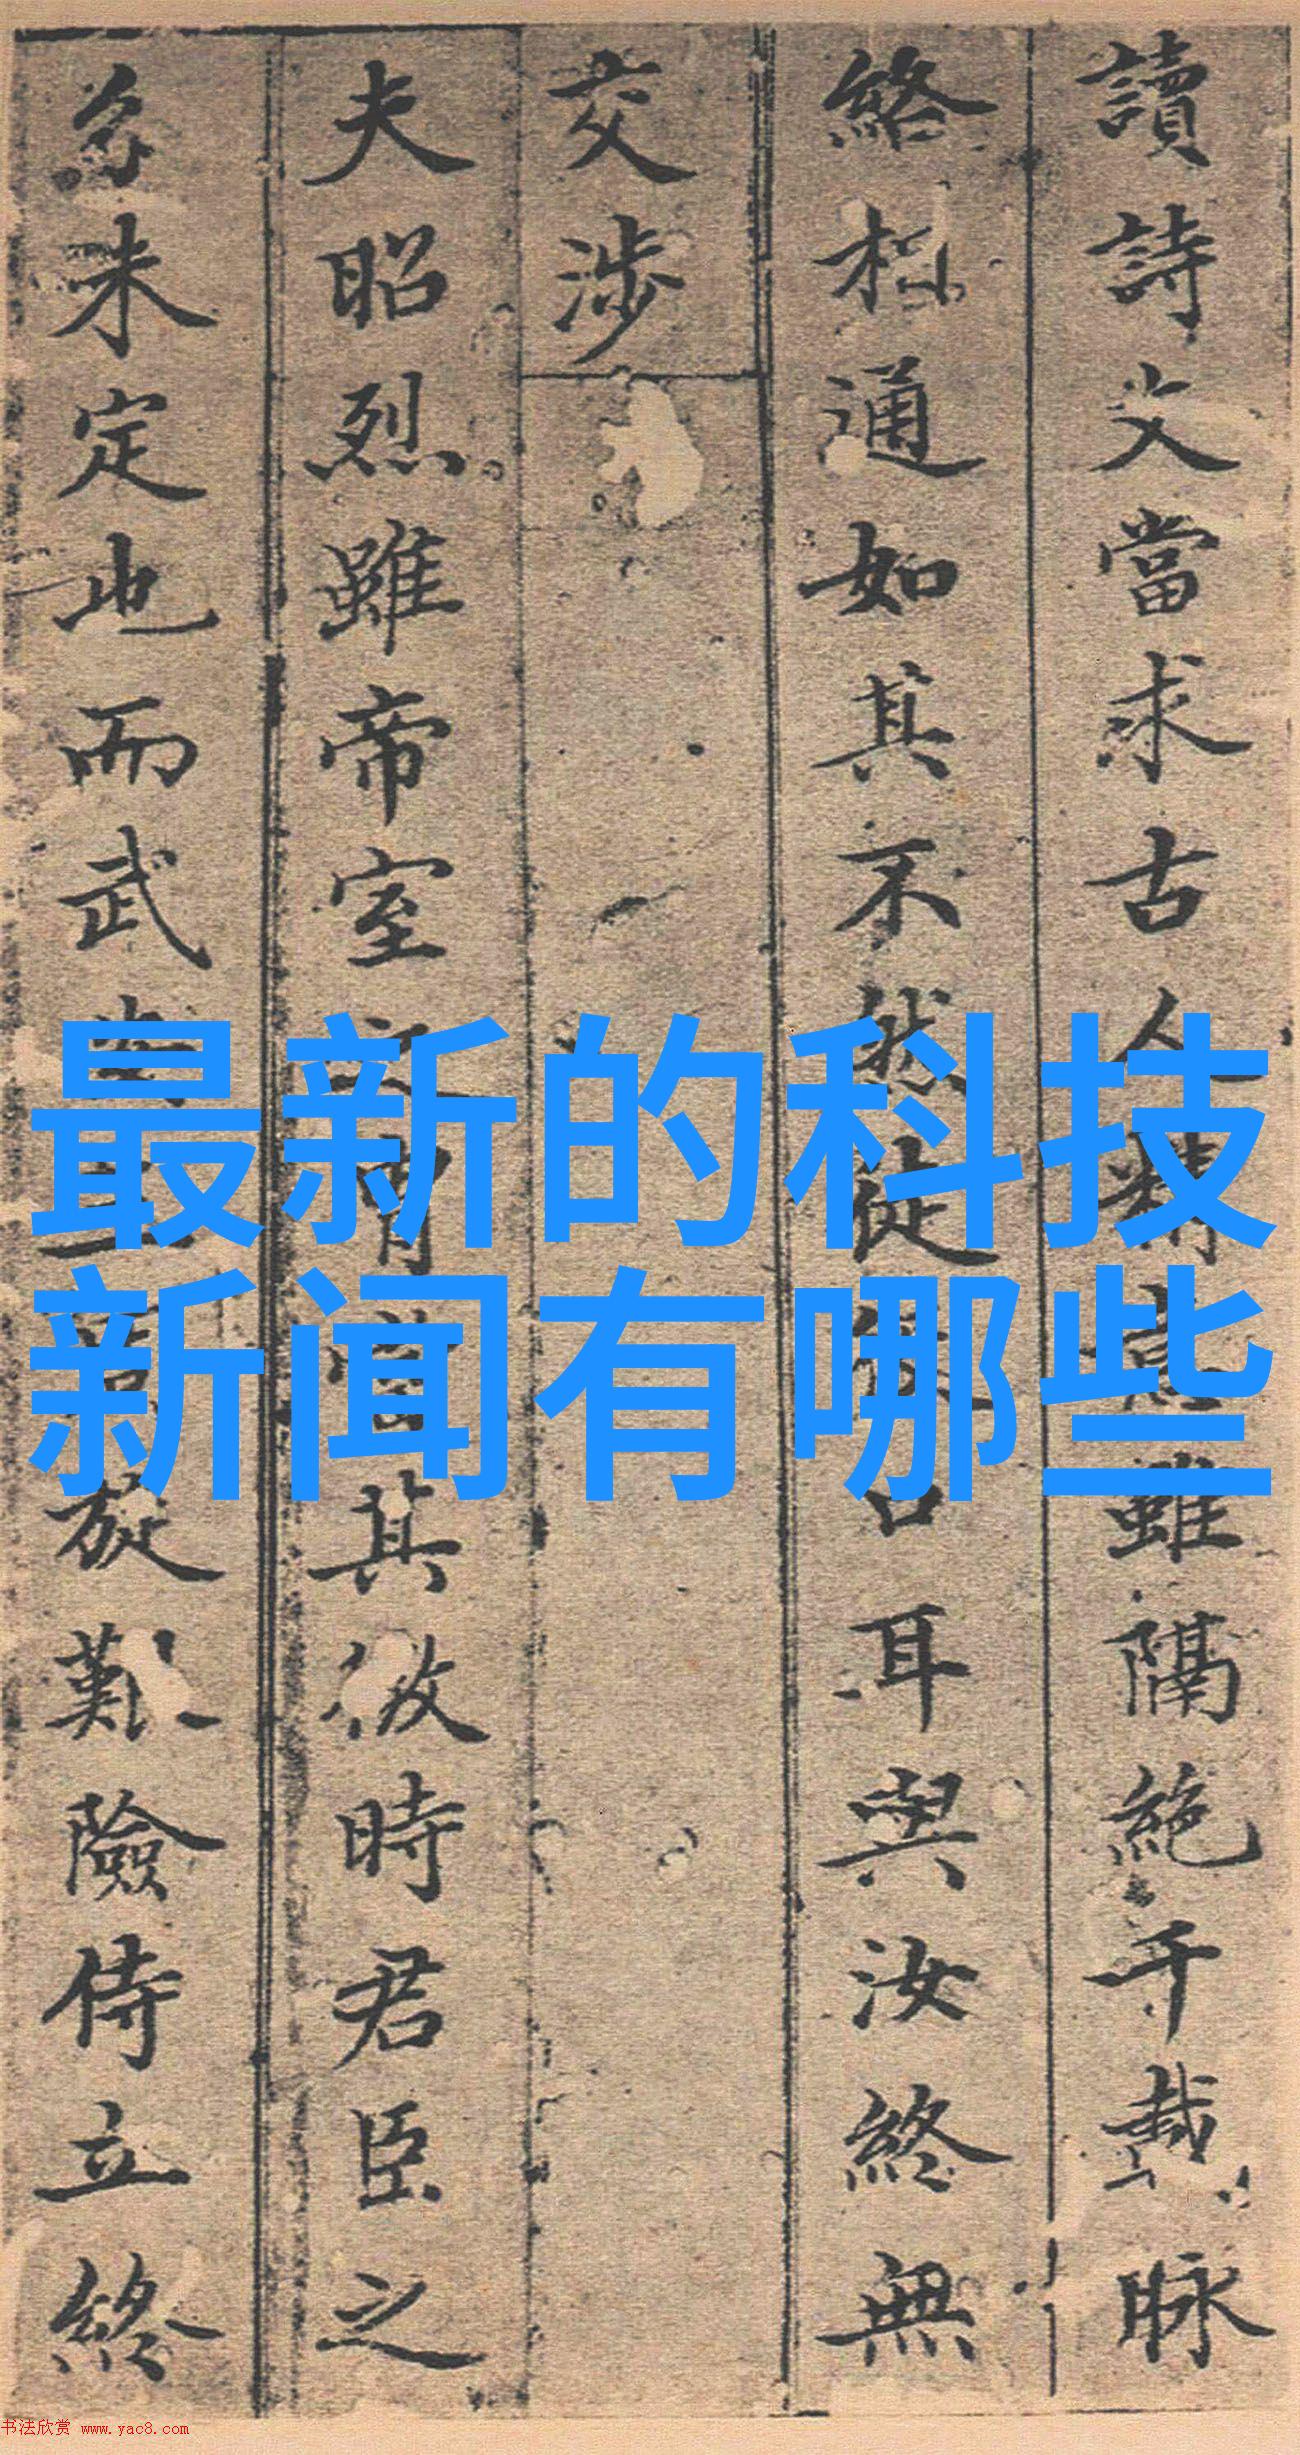 讀詩文當求古人精
雖隔絕千載脉
絡相通如其不然徒
口耳與汝終無
交涉
夫昭烈雖帝室之胄
其微時君臣之
分未定也而武
旋艱險侍立終
最新的科技
新闻有哪些
书法欣赏 www.yac8.com